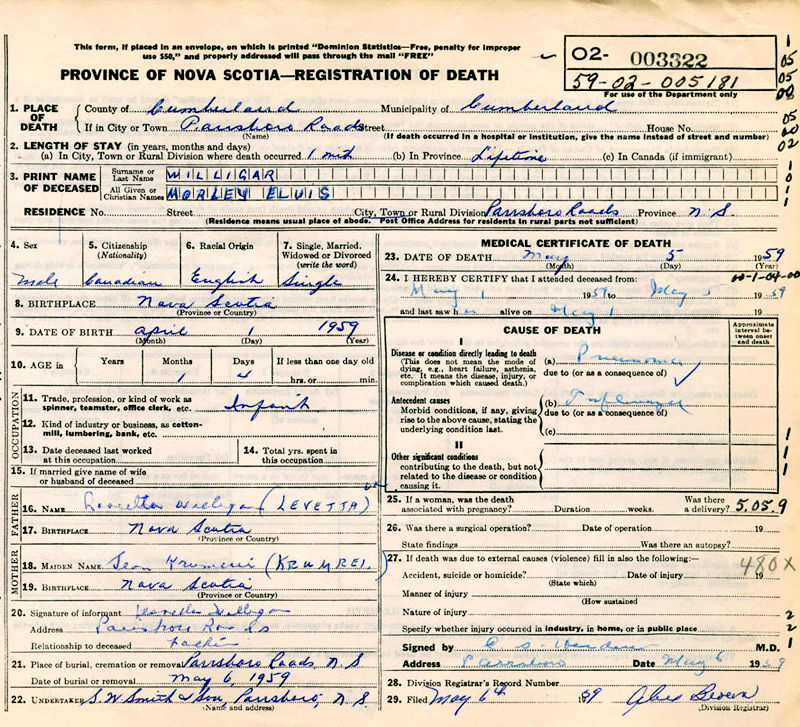 This form, if placed in an envelope, on which is printed "Dominion Statistics—Free, penalty for improper
use $50," and properly addressed will pass through the mail "FREE"
O2- 003322
59-02-005181
For use of the Department only
PROVINCE OF NOVA SCOTIA—REGISTRATION OF DEATH
1. PLACE OF DEATH
County of Cumberland Municipality of Cumberland
If in City or Town Parrsboro Roads Street House No.
(Name) (If death occurred in a hospital or institution, give the name instead of street and number)
2. LENGTH OF STAY (in years, months and days)
(a) In City, Town or Rural Division where death occurred 1 mth (b) In Province Lifetime (c) In Canada (if immigrant)
3. PRINT NAME OF DECEASED
Surname or Last Name WILLIGAR
All Given or Christian Names MORLEY ELVIS
RESIDENCE No. Street City, Town or Rural Division Parrsboro Roads Province N.S.
(Residence means usual place of abode. Post Office Address for residents in rural parts not sufficient)
4. Sex Male
5. Citizenship (Nationality) Canadian
6. Racial Origin English
7. Single, Married, Widowed or Divorced (write the word) Single
8. BIRTHPLACE Nova Scotia
(Province or Country)
9. DATE OF BIRTH April 1 1959
(Month) (Day) (Year)
10. AGE in Years Months 1 Days 4 If less than one day old hrs. or min.
OCCUPATION
11. Trade, profession, or kind of work as spinner, teamster, office clerk, etc. Infant
12. Kind of industry or business, as cotton-mill, lumbering, bank, etc.
13. Date deceased last worked at this occupation
14. Total yrs. spent in this occupation
15. If married give name of wife or husband of deceased
FATHER
16. NAME Willigar (LEVETTA)
17. BIRTHPLACE Nova Scotia
(Province or Country)
MOTHER
18. MAIDEN NAME Jean (KRUMREI)
19. BIRTHPLACE Nova Scotia
(Province or Country)
20. Signature of informant Willigar
Address Parrsboro Roads
Relationship to deceased Father
21. Place of burial, cremation or removal Parrsboro Roads, N.S
Date of burial or removal May 6, 1959
22. UNDERTAKER S.W Smith & Son, Parrsboro, N.S
(Name and address)
MEDICAL CERTIFICATE OF DEATH
23. DATE OF DEATH May 5 1959
(Month) (Day) (Year)
24. I HEREBY CERTIFY that I attended deceased from: 00-1-04-00
May 1 1959 to May 5 1959
and last saw h alive on May 1 19
CAUSE OF DEATH
Approximate interval between onset and death
I
Disease or condition directly leading to death (a) Pneumonia
(This does not mean the mode of dying, e.g., heart failure, asthenia, etc. It means the disease, injury, or complication which caused death.)
due to (or as a consequence of)
Antecedent causes (b) Influenza
Morbid conditions, if any, giving rise to the above cause, stating the underlying condition last.
due to (or as a consequence of)
(c)
II
Other significant conditions
contributing to the death, but not related to the disease or condition causing it.
25. If a woman, was the death associated with pregnancy? Duration weeks. Was there a delivery? 5.05.9
26. Was there a surgical operation? Date of operation 19
State findings Was there an autopsy?
27. If death was due to external causes (violence) fill in also the following:— 480X
Accident, suicide or homicide? Date of injury 19
(State which)
Manner of injury
(How sustained
Nature of injury
Specify whether injury occurred in industry, in home, or in public place
Signed by M.D.
Address Parrsboro Date May 6 1959
28. Division Registrar's Record Number
29. Filed May 6th 1959
(Division Registrar)